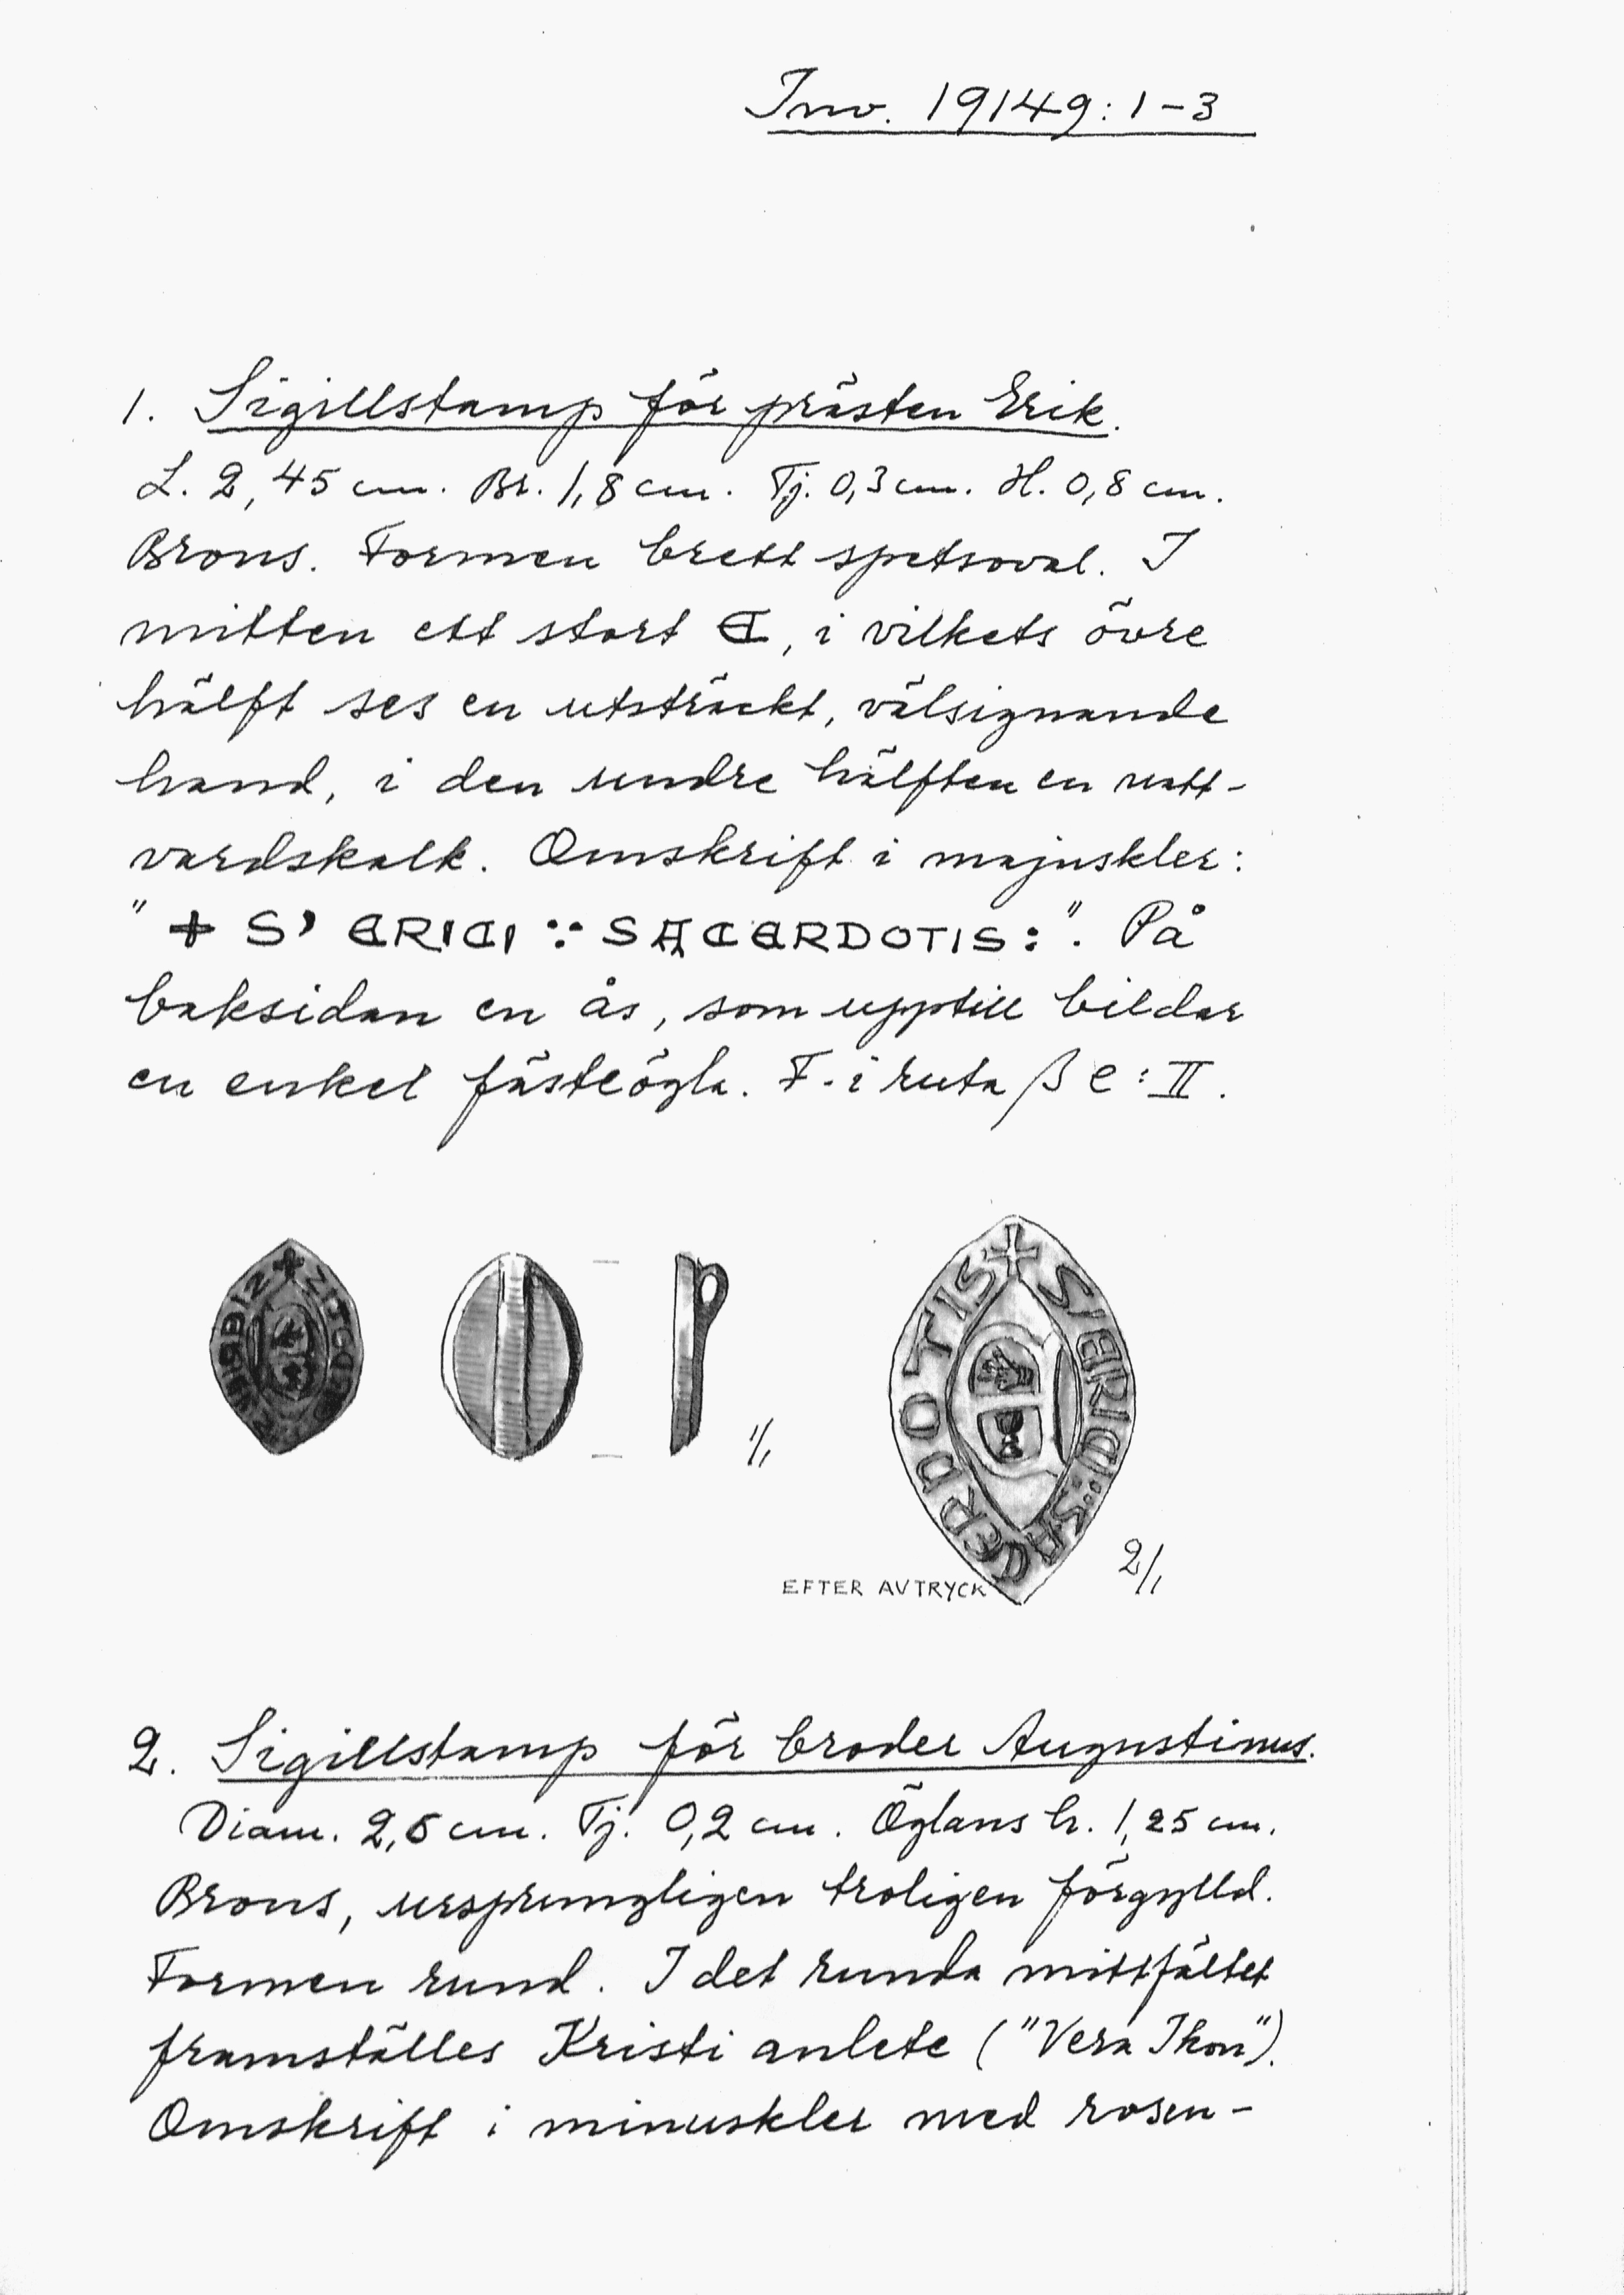 Inv. 19149:1-3
1. Sigillstamp för prästen Erik.
L. 2,45 cm. Br. 1,8 cm. Tj. 0,3 cm. H. 0,8 cm.
Brons. Formen brett spetsoval. I
mitten ett stort E, i vilkets övre
hälft ses en utsträckt, välsignande
hand, i den undre hälften en natt-
vardskalk. Omskrift i majuskler:
"+ S' ERICI :· SACERDOTIS:". På
baksidan en ås, som upptill bildar
en enkel fästeögla. F. i ruta β e: II.
1/1
+ S' ERICI :· SACERDOTIS
EFTER AVTRYCK
2/1
2. Sigillstamp för broder Augustinus.
Diam. 2,5 cm. Tj. 0,2 cm. Öglans h. 1,25 cm.
Brons, ursprungligen troligen förgylld.
Formen rund. I det runda mittfältet
framställes Kristi anlete ("Vera Ikon").
Omskrift i minuskler med rosen-